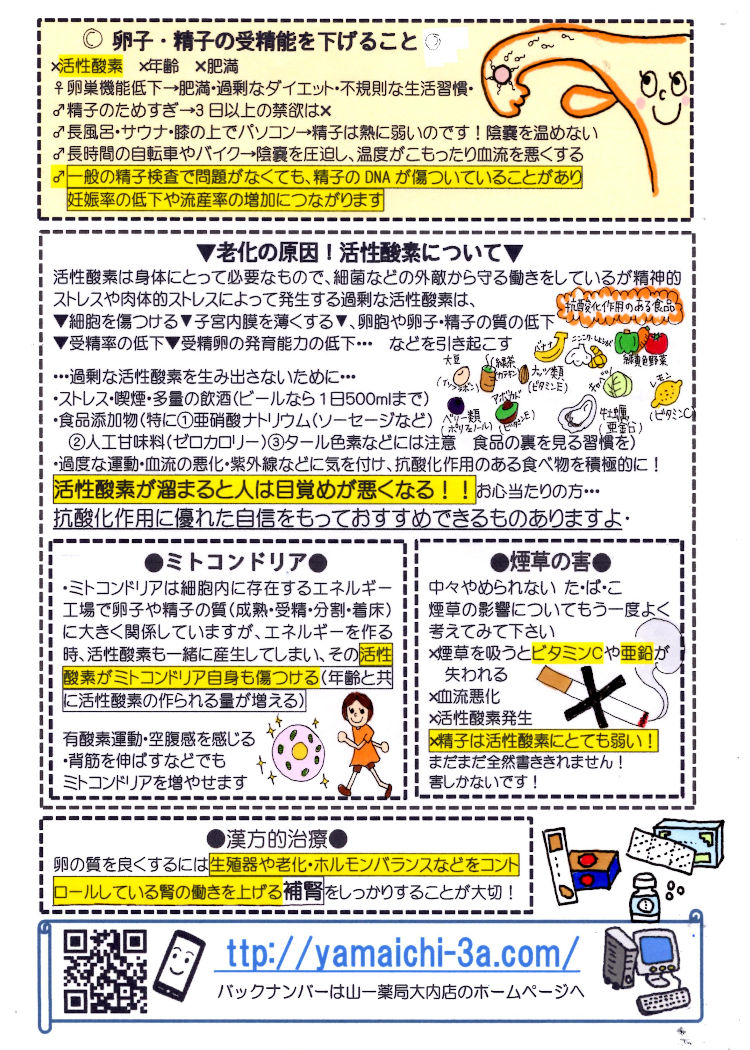 ◎ 卵子・精子の受精能を下げること
×活性酸素 ×年齢 ×肥満
♀卵巣機能低下→肥満・過剰なダイエット・不規則な生活習慣・
♂精子のためすぎ→3日以上の禁欲は×
♂長風呂・サウナ・膝の上でパソコン→精子は熱に弱いのです！陰嚢を温めない
♂長時間の自転車やバイク→陰嚢を圧迫し、温度がこもったり血流を悪くする
♂一般の精子検査で問題がなくても、精子のDNAが傷ついていることがあり
妊娠率の低下や流産率の増加につながります
▼老化の原因！活性酸素について▼
活性酸素は身体にとって必要なもので、細菌などの外敵から守る働きをしているが精神的
ストレスや肉体的ストレスによって発生する過剰な活性酸素は、
▼細胞を傷つける▼子宮内膜を薄くする▼、卵胞や卵子・精子の質の低下
▼受精率の低下▼受精卵の発育能力の低下… などを引き起こす
抗酸化作用のある食品
バナナ
緑黄色野菜
大豆
(イソフラボン)
緑茶
カテキン
ナッツ類
(ビタミンE)
キャベツ
レモン
(ビタミンC)
ベリー類
(ポリフェノール)
アボカド
(ビタミンE)
牡蠣
(亜鉛)
…過剰な活性酸素を生み出さないために…
・ストレス・喫煙・多量の飲酒(ビールなら1日500mlまで)
・食品添加物(特に①亜硝酸ナトリウム(ソーセージなど)
②人工甘味料(ゼロカロリー)③タール色素などには注意 食品の裏を見る習慣を)
・過度な運動・血流の悪化・紫外線などに気を付け、抗酸化作用のある食べ物を積極的に！
活性酸素が溜まると人は目覚めが悪くなる！！お心当たりの方…
抗酸化作用に優れた自信をもっておすすめできるものありますよ・
●ミトコンドリア●
・ミトコンドリアは細胞内に存在するエネルギー
工場で卵子や精子の質(成熟・受精・分割・着床)
に大きく関係していますが、エネルギーを作る
時、活性酸素も一緒に産生してしまい、その活性
酸素がミトコンドリア自身も傷つける(年齢と共
に活性酸素の作られる量が増える)
有酸素運動・空腹感を感じる
・背筋を伸ばすなどでも
ミトコンドリアを増やせます
●煙草の害●
中々やめられない た・ば・こ
煙草の影響についてもう一度よく
考えてみて下さい
×煙草を吸うとビタミンCや亜鉛が
失われる
×血流悪化
×活性酸素発生
×精子は活性酸素にとても弱い！
まだまだ全然書ききれません！
害しかないです！
●漢方的治療●
卵の質を良くするには生殖器や老化・ホルモンバランスなどをコント
ロールしている腎の働きを上げる補腎をしっかりすることが大切！
ttp://yamaichi-3a.com/
バックナンバーは山一薬局大内店のホームページへ